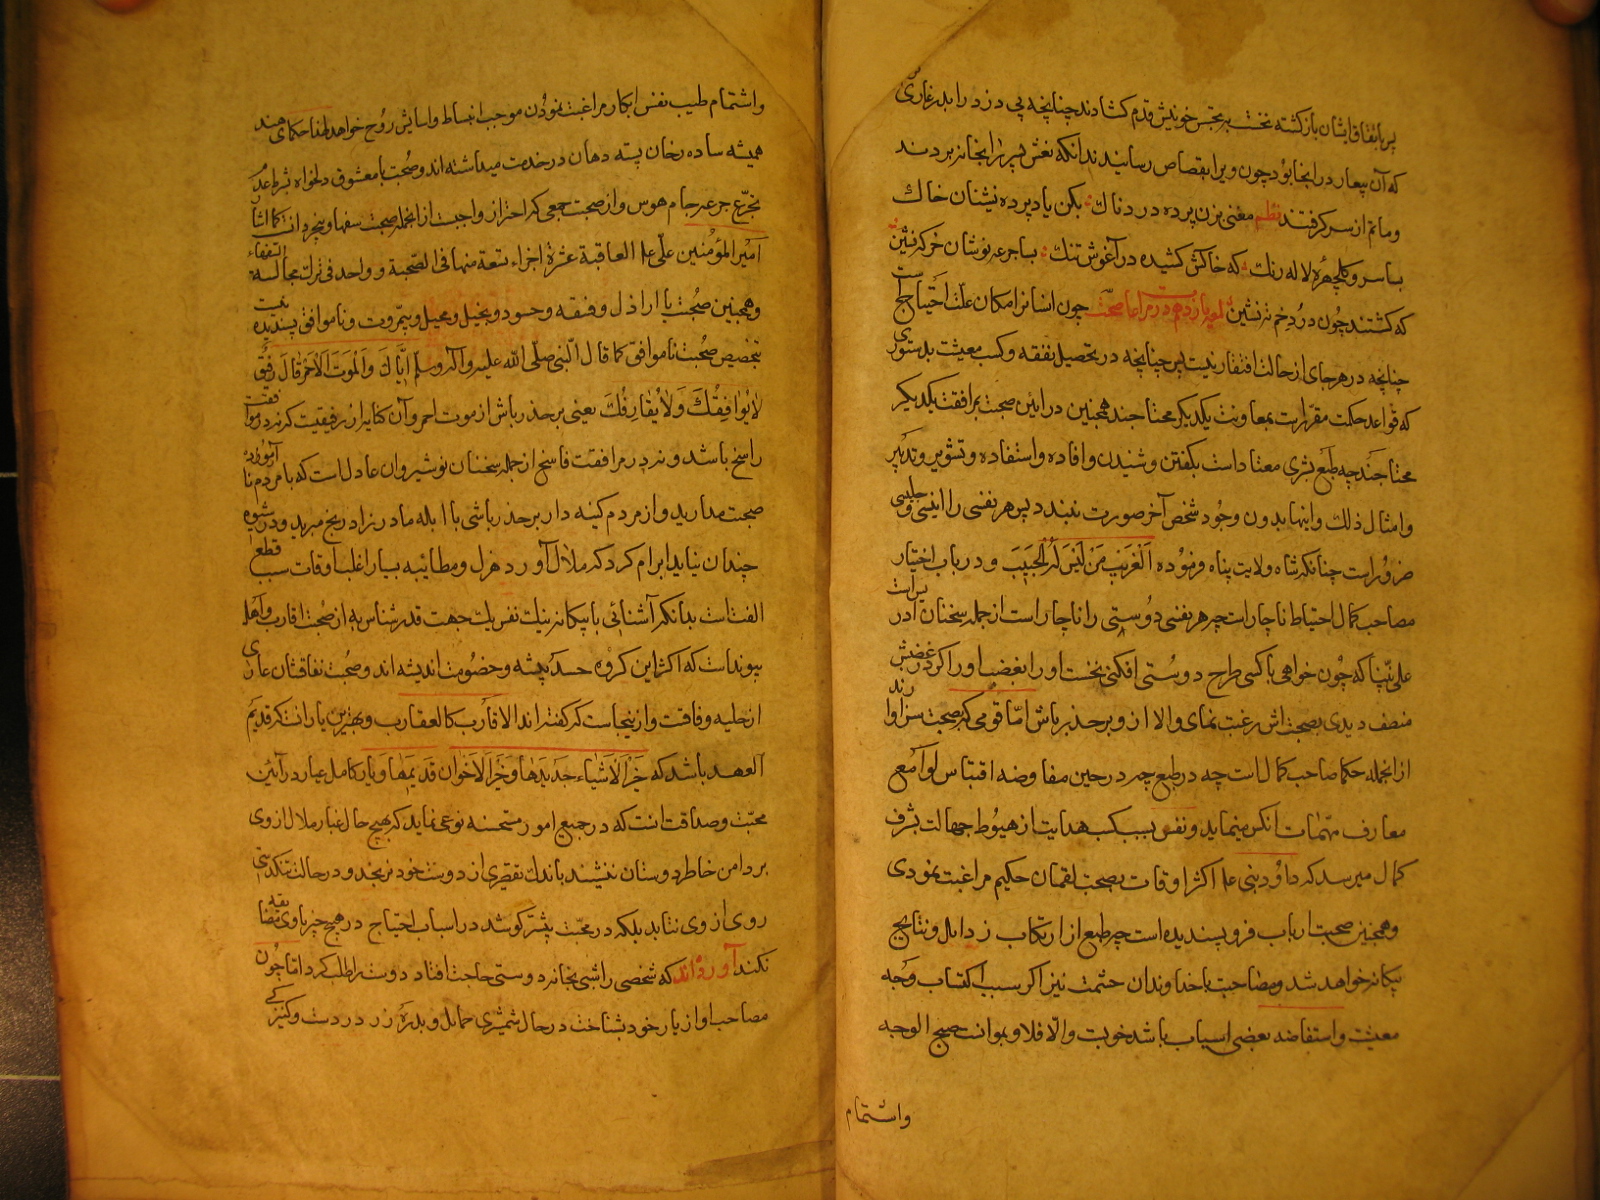 پس باتفاق ایشان بازگشته نخست بر تجسس خونیش قدم گشادند چنانچه پی دزد را بدر غاری
که آن بیچاره در آنجا بود چون ویرا بقصاص رسانیدند آنکه نعش پسر را بخانه بردند
و ماتم از سر گرفتند نظم مغنی بزن پرده دردناک بکن یاد پرده نشینان خاک
بیا سرو گلچهره لاله رنگ که خاکش کشیده در آغوش تنگ بیا جرعه نوشان خرگه نشین
که گشتند چون درد خم ته نشین در مراعات صحبت چون انسانرا مکان علت احتیاج است
چنانچه در هر جای از حالت افتقار نیست پس چنانچه در تحصیل نفقه و کسب معیشت بدستوری
که قواعد حکمت مقرر است بمعاونت یکدیگر محتاجند همچنین در آیین صحبت بمرافقت یکدیگر
محتاجند چه طبع بشری معتاد است بگفتن و شنیدن و افاده و استفاده و تشویر و تدبیر
و امثال ذلک و اینها بدون وجود شخص آخر صورت نبندد پس هر نفسی را انیسی و جلیسی
ضرور است چنانکه شاه ولایت پناه فرموده الغریب من لیس له الحبیب و در باب اختیار
مصاحب کمال احتیاط ناچار است چه هر نفسی دوستی را ناچار است از جمله سخنان
که چون خواهی با کسی طرح دوستی افکنی نخست او را بغضب آور اگر در غضبش
منصف دیدی بصحبتش رغبت نمای والا از وی برحذر باش اما قومی که صحبت سزاوارند
از آنجمله حکما صاحب کمال است چه در طبع چه در حین مفاوضه اقتباس لوامع
معارف نماید و نفس بسبب کسب هدایت از هبوط جهالت بشرف
کمال میرسد که داود نبی علی اکثر اوقات بصحبت لقمان حکیم مراغبت نمودی
و همچنین صحبت ارباب فر و پسندیده است چه طبع از ارتکاب رذایل و نتایج
بیگانه خواهد شد و مصاحبت با خداوندان حشمت نیز اگر سبب اکتساب وجه
معیشت و استفاضه بعضی اسباب باشد خوبست والا فلا و موانست صبیح الوجه
واشتمام
واشتمام طیب نفس ابکار مراغبت نمودن موجب انبساط و آسایش روح خواهد لهذا حکمای هند
همیشه ساده رخان پسته دهان در خدمت میداشته اند و صحبت با معشوق دلخواه بشرط عدم
تجرع جرعه جام هوس و از صحبت جمعی که احتراز واجبست از آنجمله صحبت سفها و بیخردانست کما اشار
امیر المؤمنین علی علی العاقبة عشرة اجزاء تسعة منها فی الصحبة و واحد فی ترک مجالسة السفهاء
و همچنین صحبت با اراذل و فسقه و حسود و بخیل و محیل و بیمروت و ناموافق پسندیده نیست
بتخصیص صحبت ناموافق کما قال النبی صلی الله علیه وآله وسلم ایاک والموت الاحمر قال رفیق
لا یوافقک ولا یفارقک یعنی برحذر باش از موت احمر و آن کنایه از رفیقیست که نه در موافقت
راسخ باشد و نه در مرافقت فاسخ از جمله سخنان نوشیروان عادل است که با مردم نا آزموده
صحبت مدارید و از مردم کینه دار برحذر باشی با ابله مادرزاد رنج مبرید و در شیوه
چندان نباید ابرام کرد که ملال آورد و هزل و مطایبه بسیار اغلب اوقات سبب قطع
الفتست بدانکه آشنائی با بیگانه نیک نفس یک جهت قدرشناس به از صحبت اقارب و اهل
پیوند است که اکثر این گروه حسد پیشه و خصومت اندیشه اند و صحبت نفاقشان عاری
از حلیه وفاقت و ازینجاست که گفته اند الاقارب کالعقارب و بهترین یاران آنست که قدیم
العهد باشد که خیر الاشیاء جدیدها و خیر الاخوان قدیمها و یار کامل عیار در آیین
محبت و صداقت آنست که در جمیع امور مستحسنه نوعی نماید که بهیچ حال غبار ملال از وی
بر دامن خاطر دوستان ننشیند باندک تقصیری از دوست خود نرنجد و در حالت تنگدستی
روی از وی نتابد بلکه در محبت بیشتر کوشد در اسباب احتیاج در هیچ چیز با وی مضایقه
نکند آورده اند که شخصی را شبی بخانه دوستی حاجت افتاد دوست را طلب کرد اما چون
مصاحب آواز یار خود بشناخت در حال شمشیری حمایل و بدره زر در دست و کنیزکی